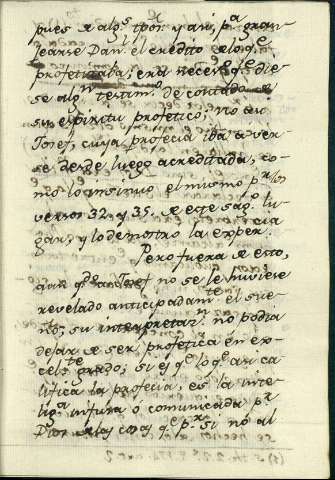 pues de algs. tpos. y asi, pa. gran
jearse Dan. el credito de lo qe.
profetizaba, era neces. qe. die
se algn. testimo. de contado de
su espiritu profetico; no asi
Josef, cuya profecia iba a ver
se desde luego acreditada, co-
mo lo insinuo el mismo pr. los
versos 32. y 35. de este sago. lu
gar, y lo demostro la expercia.
Pero fuera de esto,
aun qdo. a Josef no se le huviese
revelado anticipadamte. el sue
ño, su interpretazn. no podia
dejar de ser profetica en ex-
celte. grado; si es qe. lo qe. ca
lifica la profecia, es la inte-
liga. infusa ó comunicada pr.
Dios de las cosas qe. pr. si no al